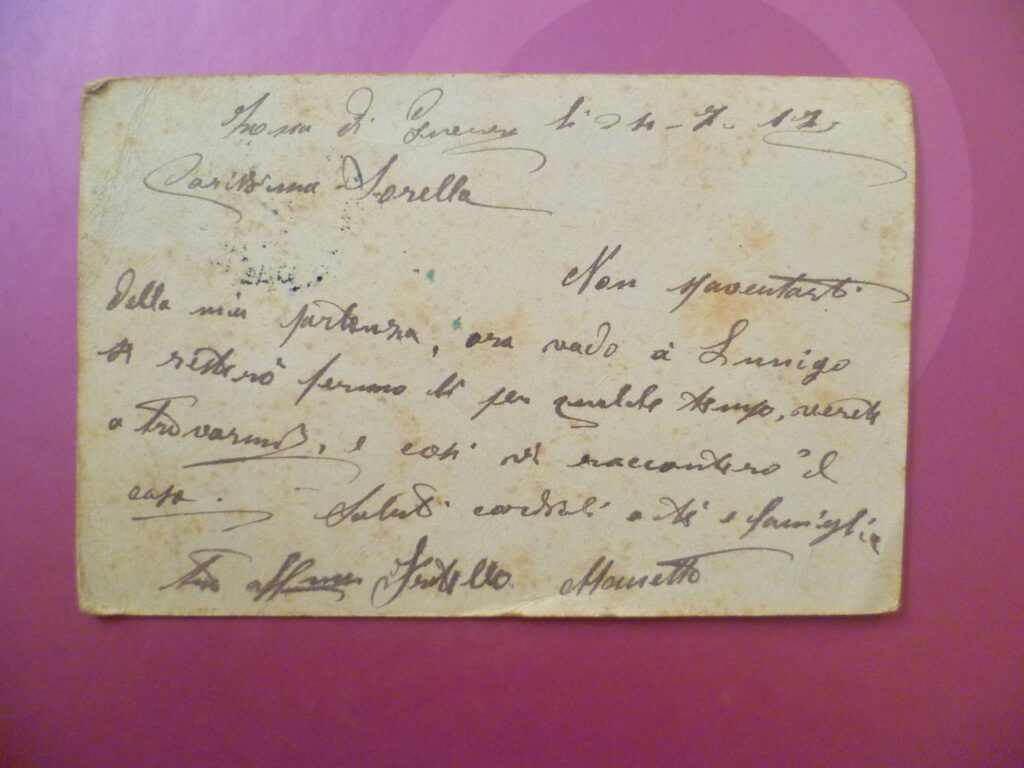 Zona di Guerra li 24-7-17
Carissima Sorella
Non spaventarti
della mia partenza, ora vado à Lunigo
e resterò fermo li per qualche tempo, verete
a trovarmi, e così vi raccontero il
caso. Saluti cordiali a te e famiglia
tuo affmo Fratello